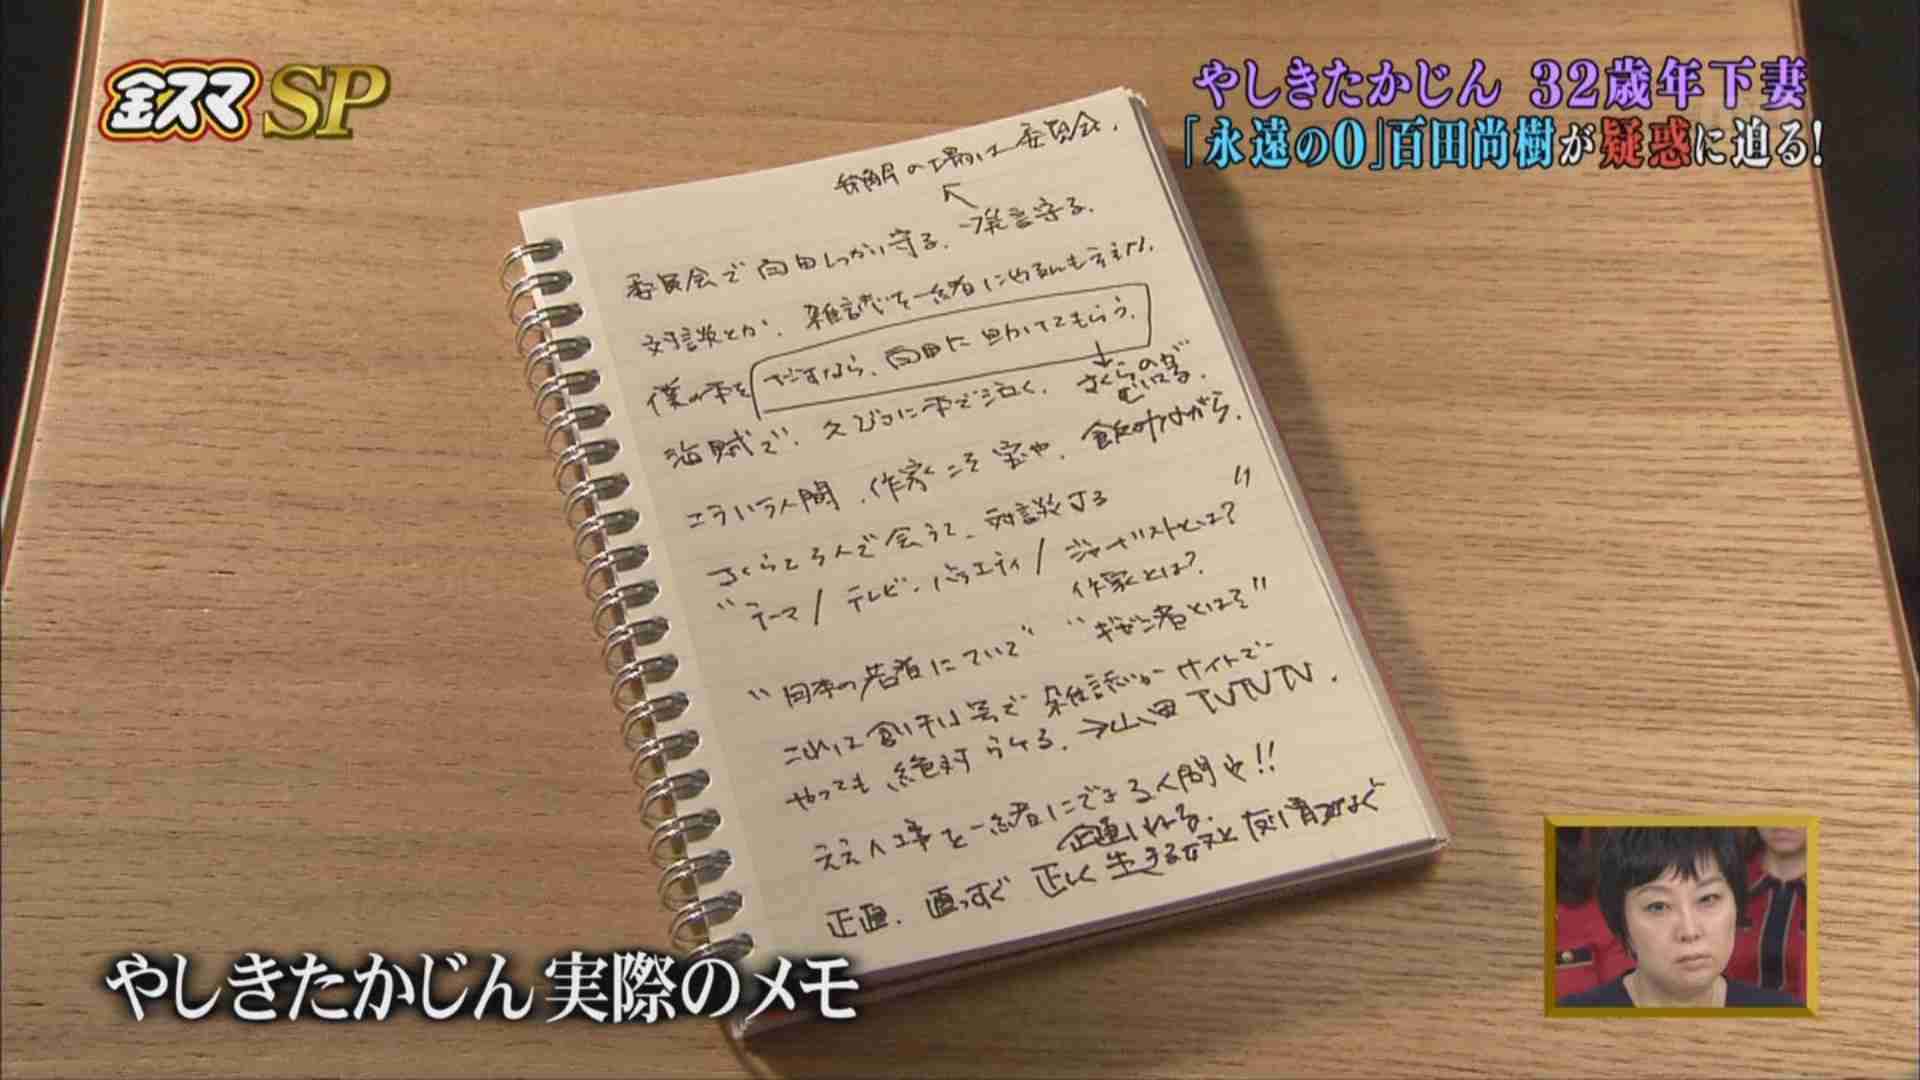 金スマSP
やしきたかじん 32歳年下妻
「永遠の0」百田尚樹が疑惑に迫る!
の場は委員会.
委員会で百田しっかり守る. 発言守る.
対談とか、雑誌を一緒にやるんもええ!!
僕の本を だすなら、百田に助けてもらう.
海賊で、久びさに本で泣く. さくらの
こういう人間、作家こそ宝や、飯
さくらと3人で会うて、対談する
"テーマ/テレビ・バラエティ/ジャーナリストとは?"
作家とは?
"日本の若者について" "ギゼン者とは?"
雑誌かサイトで
やっても絶対うける.
ええ仕事を一緒にできる人間や!!
正直. 直っすぐ 正しく生きる 友情
やしきたかじん 実際のメモ